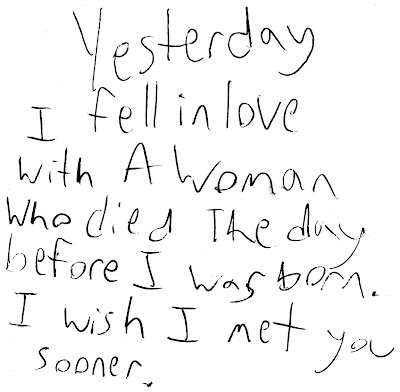 Yesterday
I fell in love
with A Woman
who died The day
before I was born.
I wish I met you
sooner.